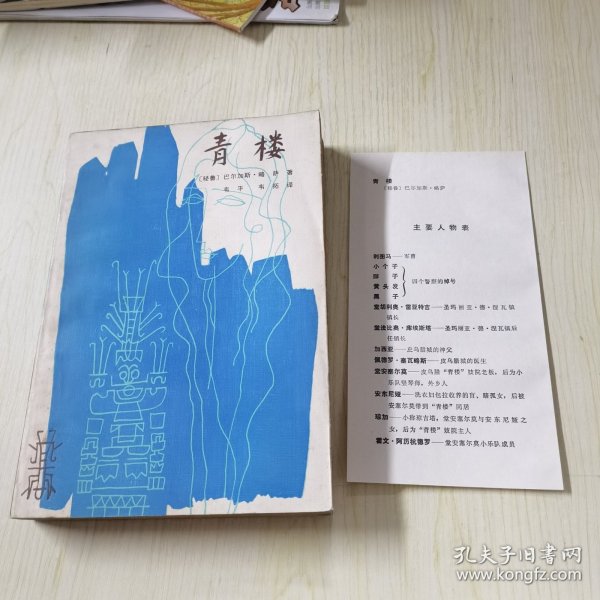 青楼
〔秘鲁〕巴尔加斯·略萨 著
韦平 韦拓 译
青楼
〔秘鲁〕巴尔加斯·略萨
主要人物表
利图马——军曹
小个子
猴子
黄头发
黑子
四个警察的绰号
堂胡利奥·雷亚特吉——圣玛丽亚·德·涅瓦镇
镇长
堂法比奥·库埃斯塔——圣玛丽亚·德·涅瓦镇后
任镇长
加西亚——皮乌腊城的神父
佩德罗·塞瓦略斯——皮乌腊城的医生
堂安塞尔莫——皮乌腊“青楼”妓院老板，后为小
乐队竖琴师，外乡人
安东尼娅——洗衣妇包拉收养的盲、哑孤女，后被
安塞尔莫带到“青楼”同居
琼加——小称琼吉塔，堂安塞尔莫与安东尼娅之
女，后为“青楼”妓院主人
霍文·阿历杭德罗——堂安塞尔莫小乐队成员
孔夫子旧书网
www.kongfz.com